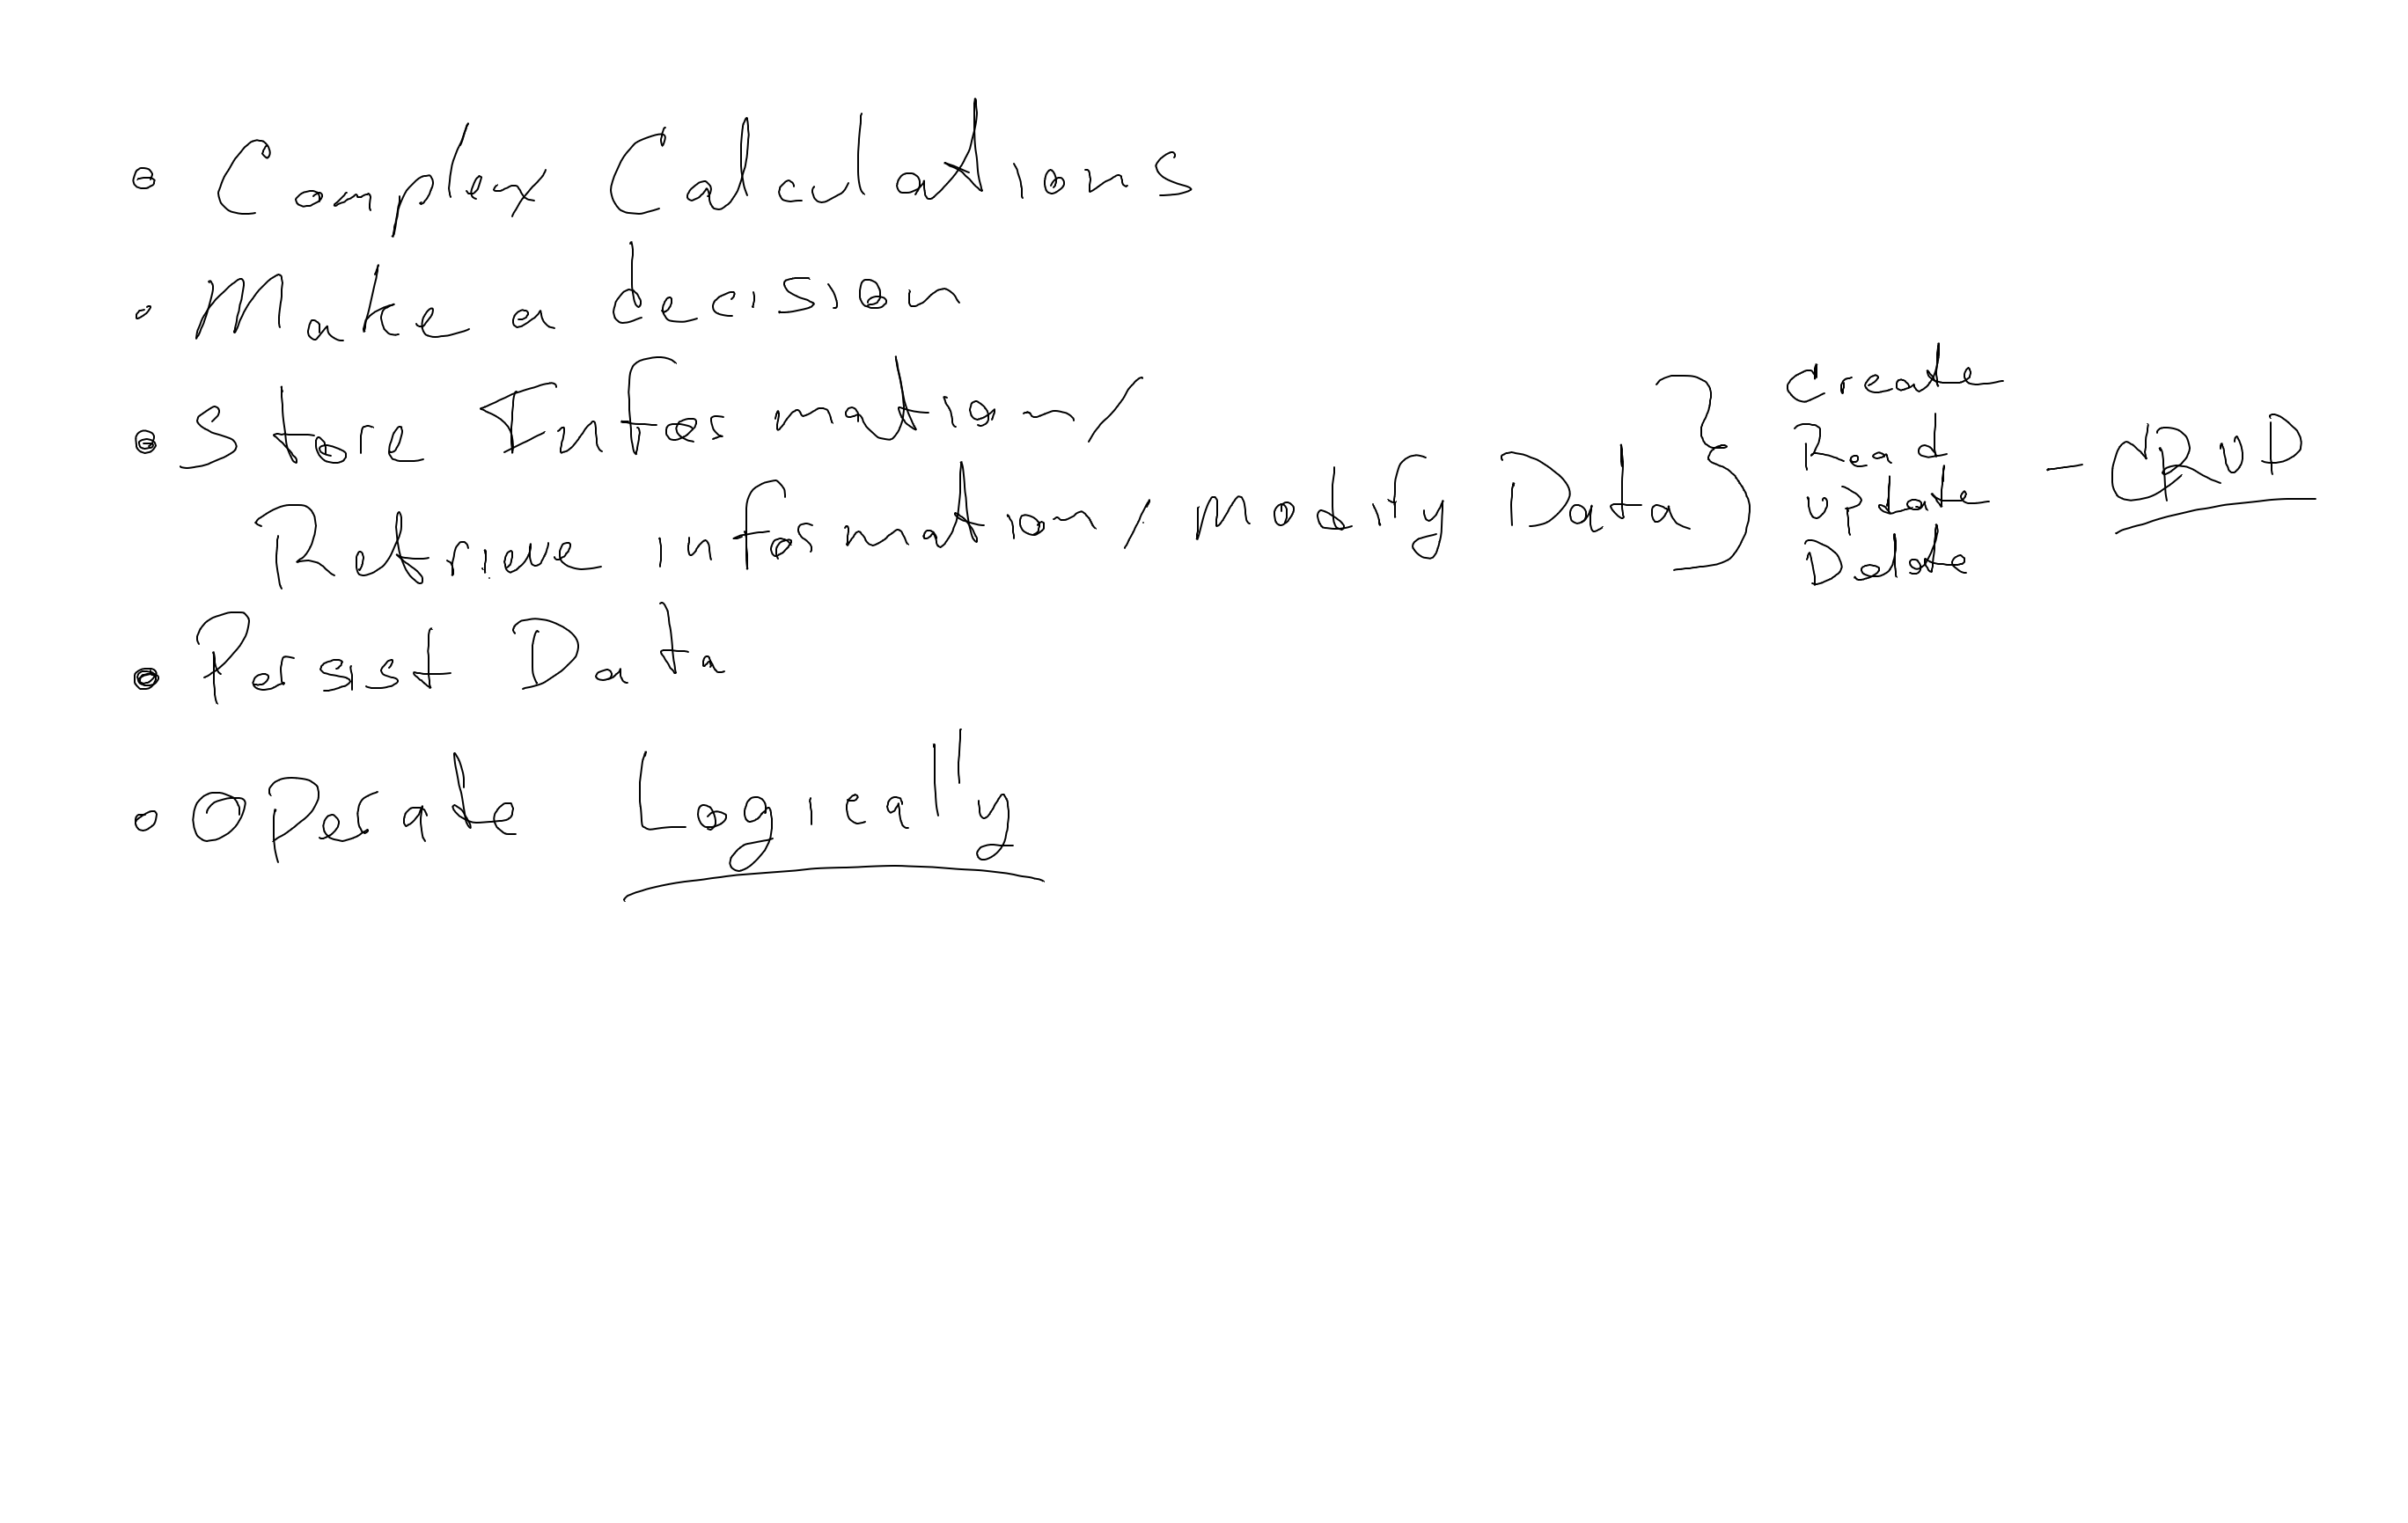 • Complex Calculations
• Make a decision
• Store Information/
Retrieve information/ modify Data } Create
Read
Update
Delete
- CRUD
• Persist Data
• Operate Logically